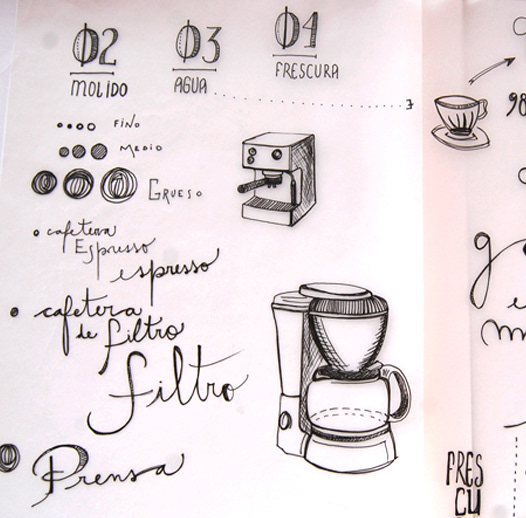 02 03 04
MOLIDO AGUA FRESCURA
FINO
MEDIO
GRUESO
cafetera
Espresso
espresso
cafetera
de filtro
filtro
Prensa
98
g
e
m
FRES
CU